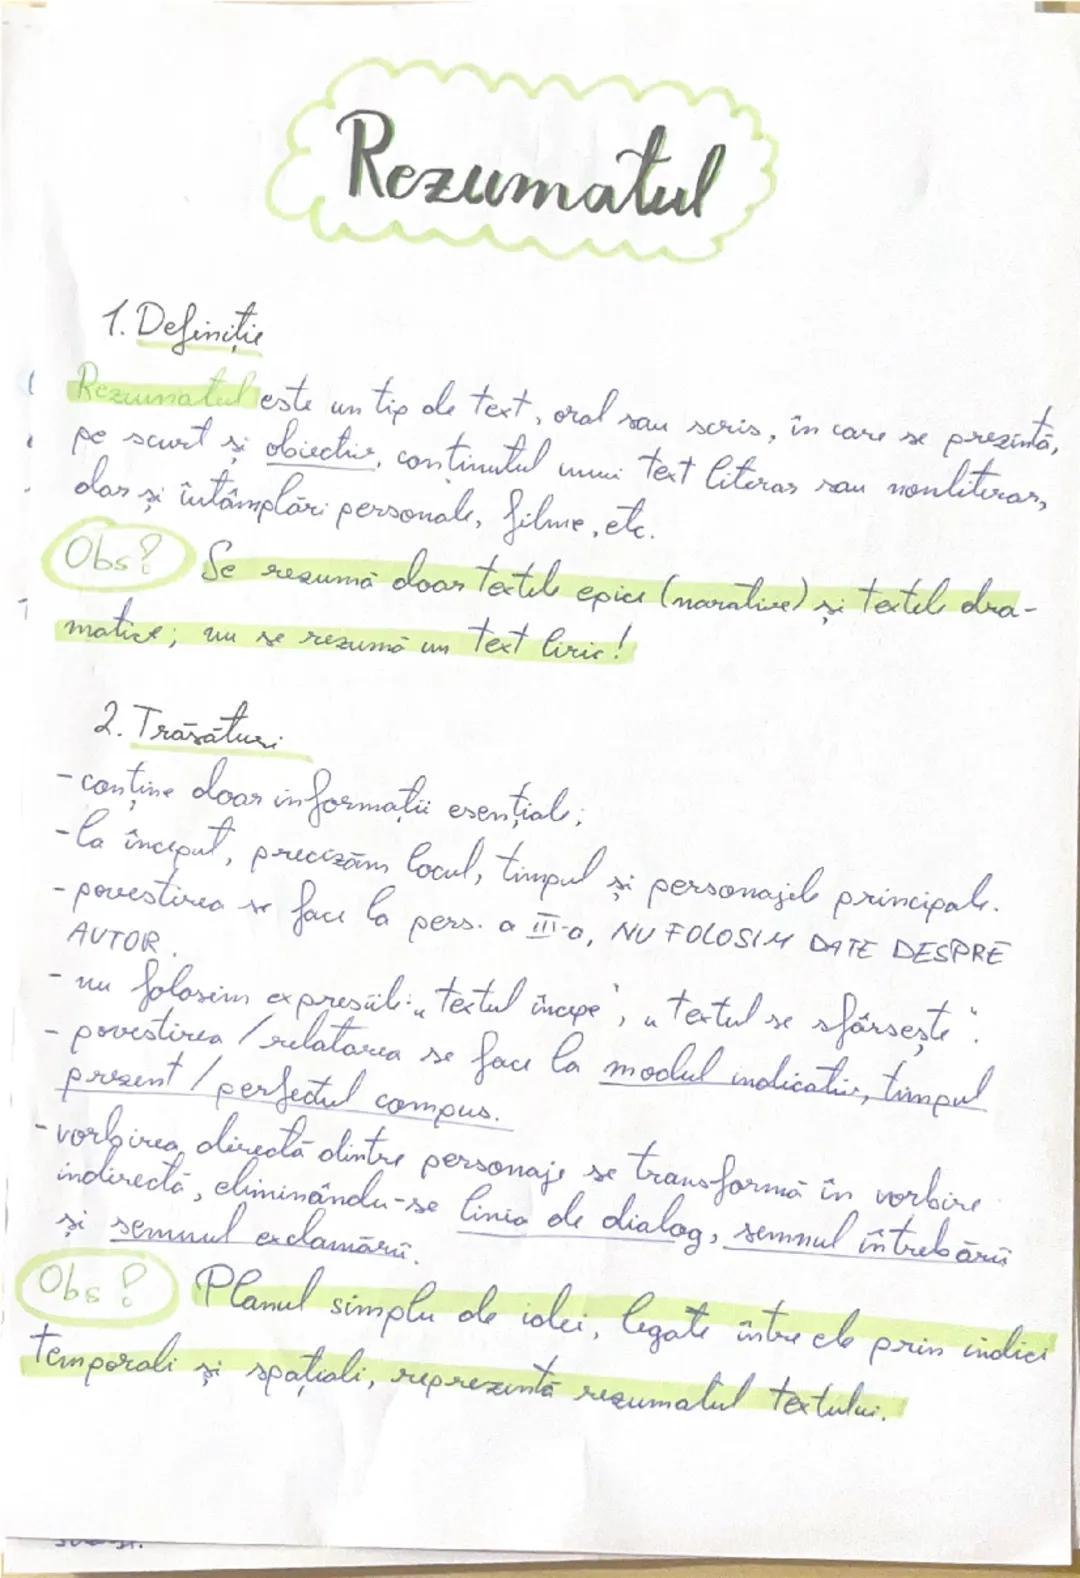 Rezumatul
1. Definiție
Rezumatul este un tip de text, oral sau scris, în care se prezintă,
pe scurt și obiectiv, conținutul unui text literar sau nonliterar,
dar și întâmplări personale, filme, etc.
Obs! Se rezumă doar textele epice (narative) și textele dra-
matice; nu se rezumă un text liric!
2. Trăsături
- conține doar informații esențiale;
- la început, precizăm locul, timpul și personajele principale.
- povestirea se face la pers. a III-a, NU FOLOSIM DATE DESPRE
AUTOR.
- nu folosim expresiile: „textul începe”, „textul se sfârșește”.
- povestirea / relatarea se face la modul indicativ, timpul
prezent / perfectul compus.
- vorbirea directă dintre personaje se transformă în vorbire
indirectă, eliminându-se linia de dialog, semnul întrebării
și semnul exclamării.
Obs! Planul simplu de idei, legate între ele prin indici
temporali și spațiali, reprezintă rezumatul textului.